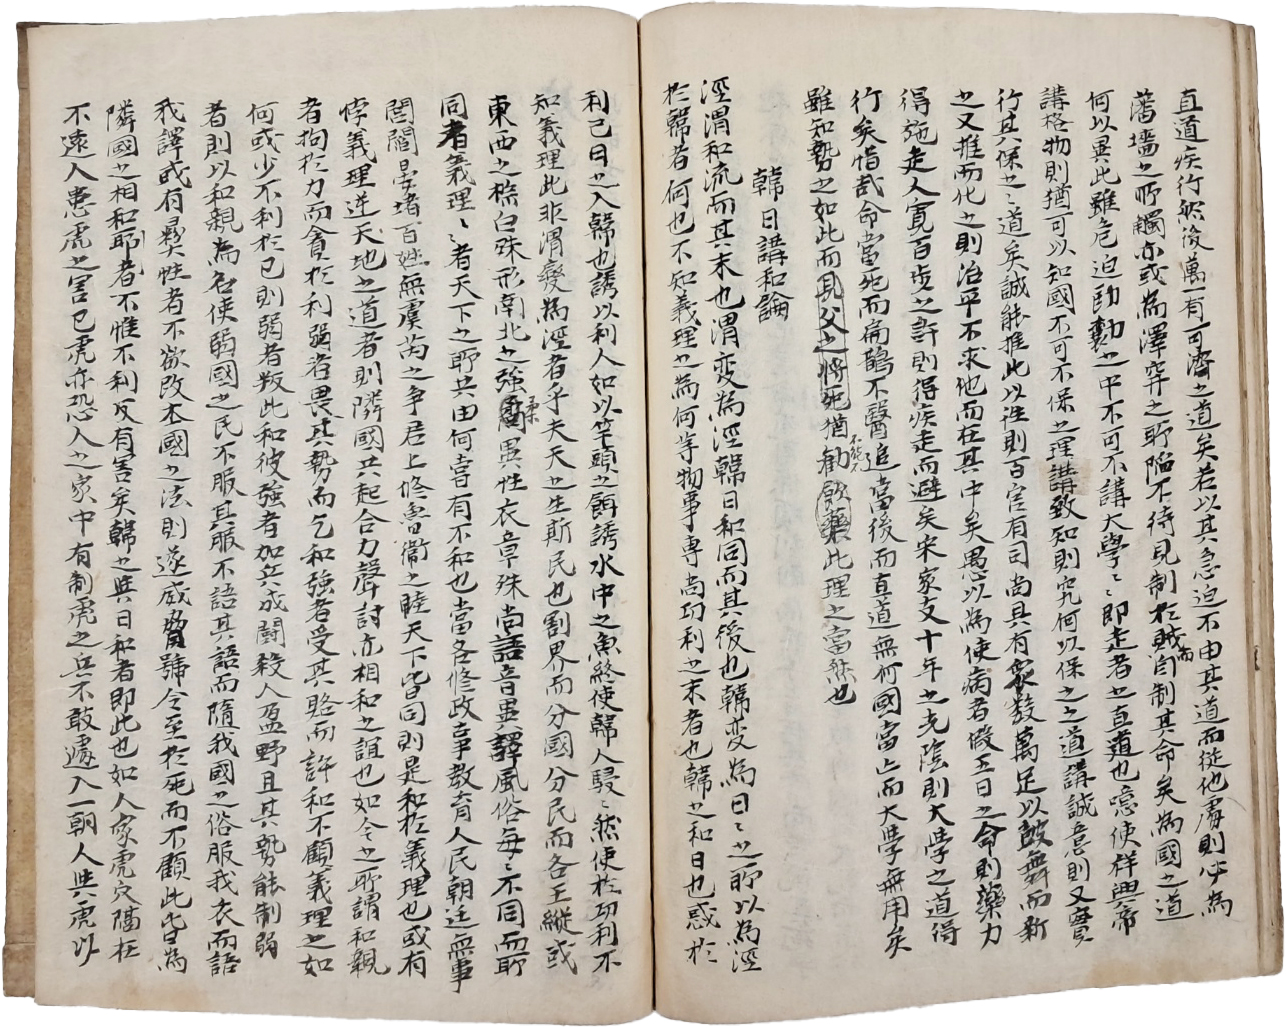 直道疾行然後萬一有可濟之道矣若以其急迫不由其道而從他虜則必為
藩墻之所觸亦或為澤穽之所陷不待見制於賊而自制其命矣為國之道
何以異此雖危迫動之中不可不講大學ヽ即走者之直道也噫使群輿帝
講格物則猶可以知國不可不保之理講致知則究何以保之之道講誠意則又實
行其保之ヽ道矣誠能推此以往則百官有司尚具有衆數萬足以鼓舞而新
之又推而化之則治平不求他而在其中矣愚以為使病者假五日之命則藥力
得施走人寬百步之許則得疾走而避矣宋家支十年之光陰則大學之道得
行矣惜哉命當死而扁鵲不醫追當後而直道無何國當亡而大學無用矣
雖知勢之如此而見父之將死猶不能不勸飲藥此理之當然也
韓日講和論
涇渭和流而其末也渭变為涇韓日和同而其後也韓变為日ヽ之所以為涇
於韓者何也不知義理之為何等物事專尚功利之末者也韓之和日也惑於
利己日之入韓也誘以利人如以竿頭之餌誘水中之魚終使韓人駸ヽ然使於功利不
知義理此非渭變為涇者乎夫天之生斯民也割界而分國分民而各王縱或
東西之棕白殊形南北之強柔異性衣章殊尚語音異譯風俗每ヽ不同而所
同者義理ヽ者天下之所共由何嘗有不和也當各修政事教育人民朝廷無事
閭閻晏堵百姓無虞芮之争君上修魯衛之睦天下皆同則是和於義理也或有
悖義理逆天地之道者則隣國共起合力聲討亦相和之誼也如今之所謂和親
者拘於力而貪於利弱者畏其勢而乞和強者受其賂而許和不顧義理之如
何或少不利於己則弱者叛此和彼強者加兵成鬪殺人盈野且其勢能制弱
者則以和親為名使弱國之民不服其服不語其語而隨我國之俗服我衣而語
我譯或有彛性者不欲改本國之法則遂威脅號令至於死而不顧此皆為
隣國之相和耶者不惟不利反有害矣韓之與日和者即此也如人家虎穴隔在
不遠人患虎之害已虎亦恐人之家中有制虎之兵不敢遽入一朝人與虎以